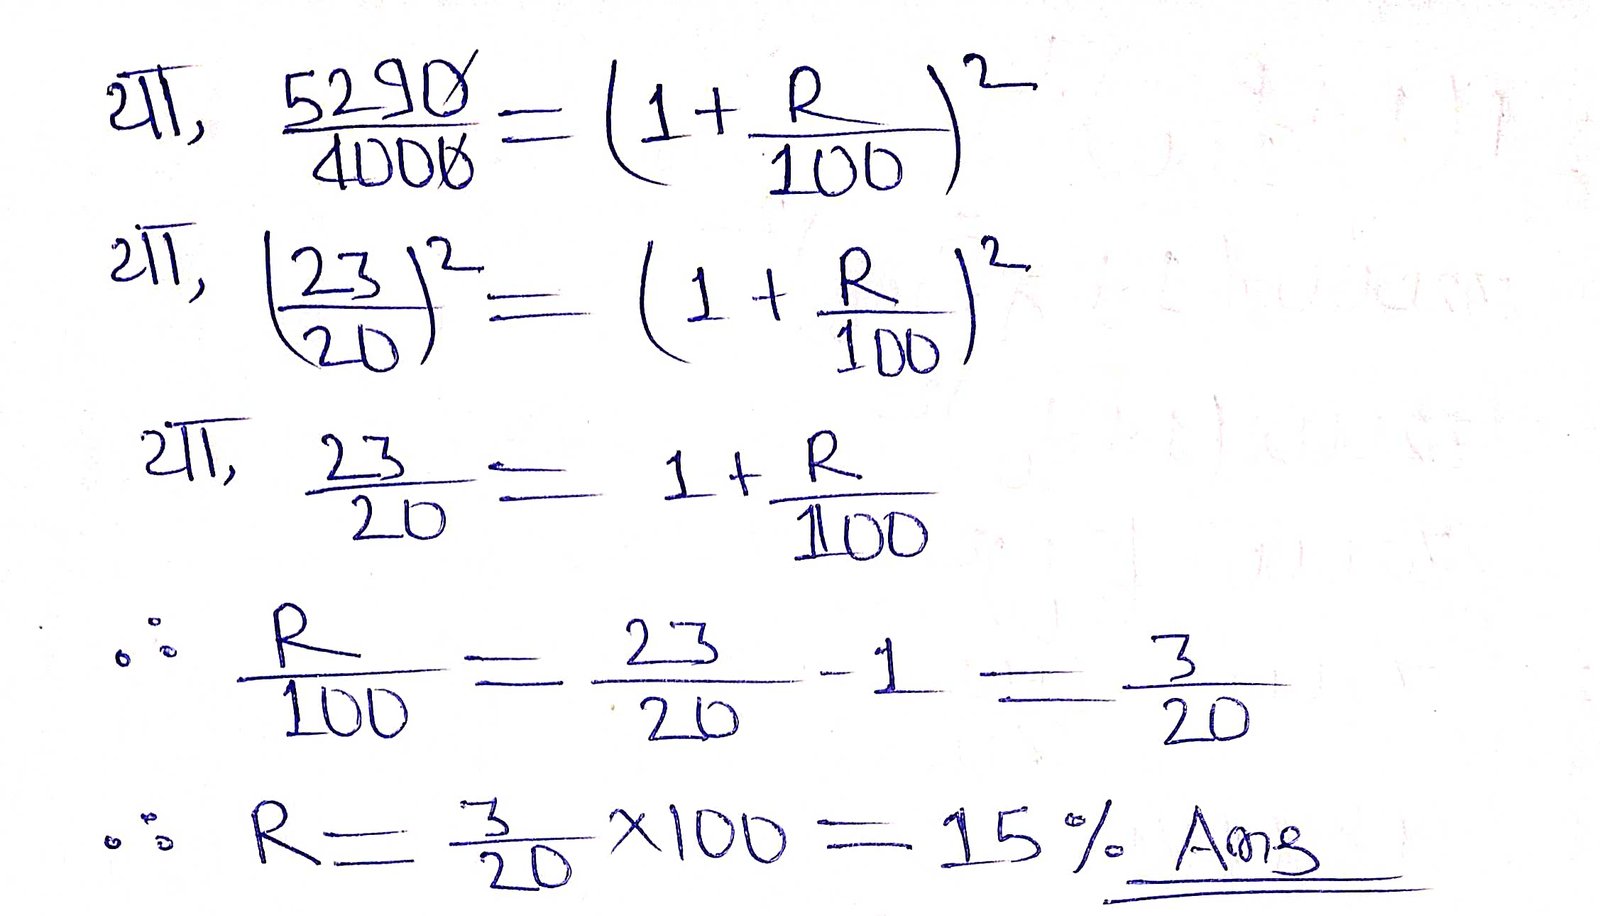 या, 5290/4000 = (1 + R/100)²
या, (23/20)² = (1 + R/100)²
या, 23/20 = 1 + R/100
∴ R/100 = 23/20 - 1 = 3/20
∴ R = 3/20 × 100 = 15% Ans